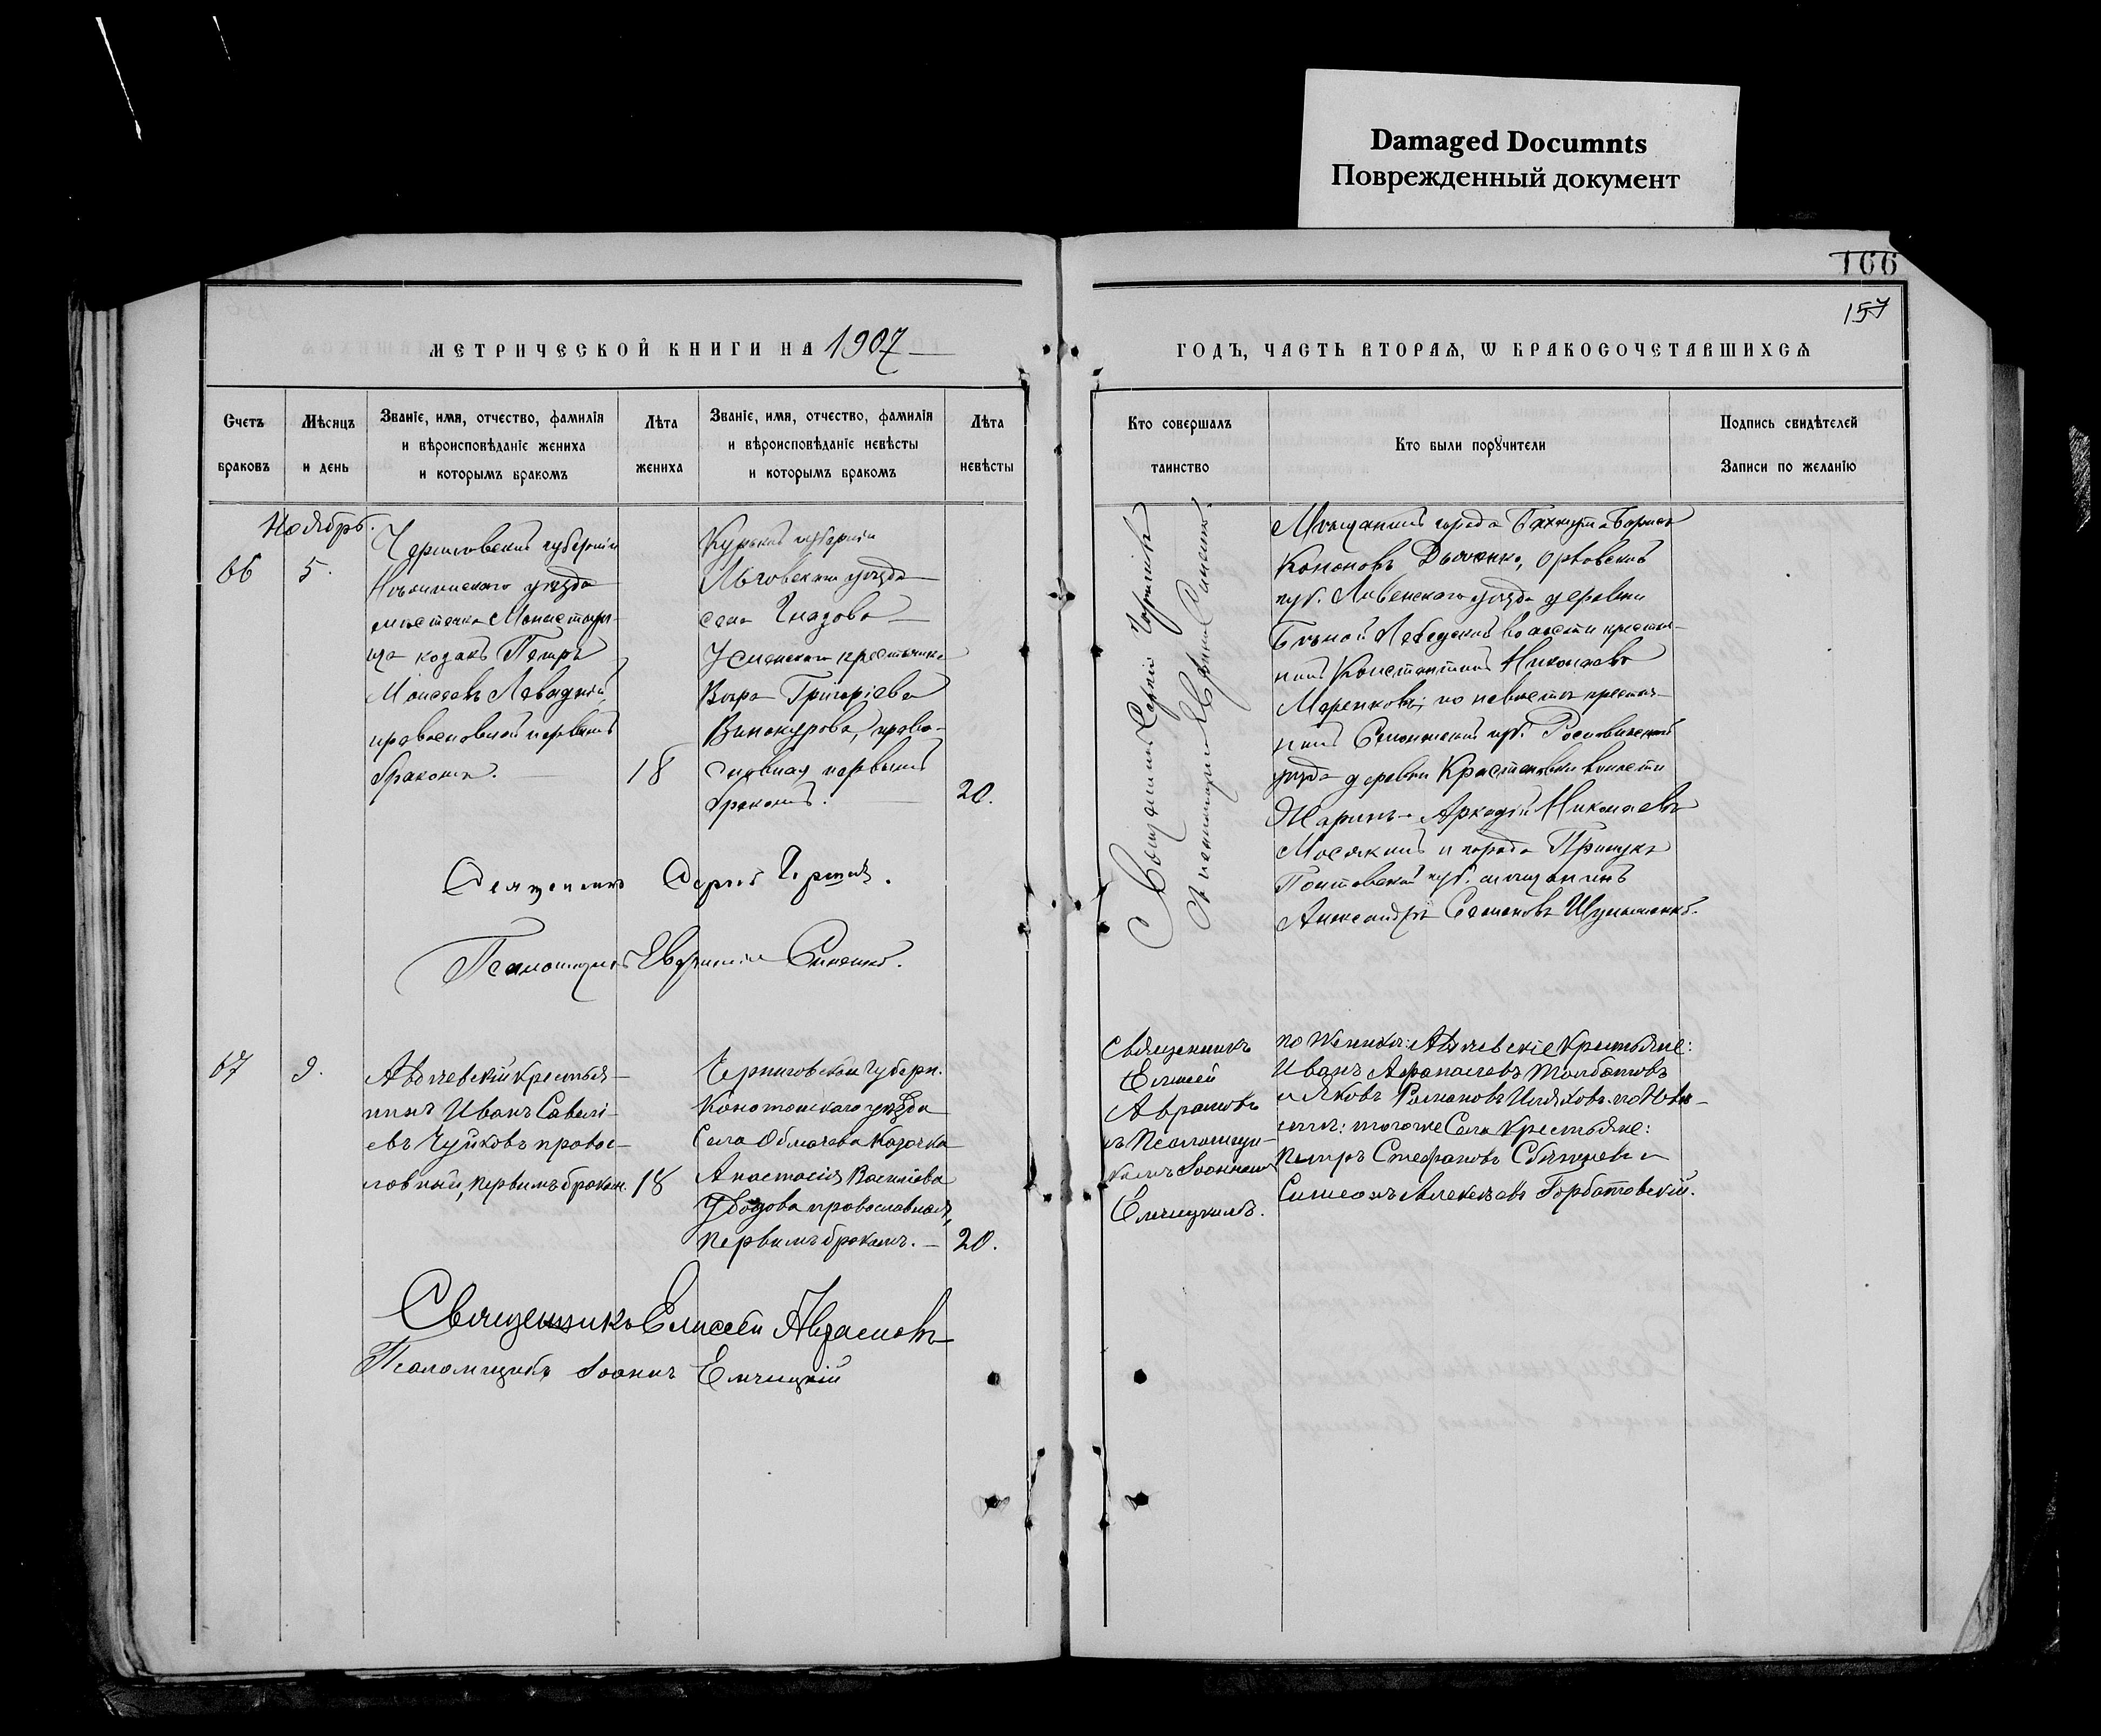 Damaged Documnts
Поврежденный документ
166
157
МЕТРИЧЕСКОЙ КНИГИ НА 1907
ГОДЪ, ЧАСТЬ ВТОРАѦ, Ѡ БРАКОСОЧЕТАВШИХСѦ
Счетъ браковъ
Мѣсяцъ и день
Званіе, имя, отчество, фамилія
и вѣроисповѣданіе жениха
и которымъ бракомъ
Лѣта жениха
Званіе, имя, отчество, фамилія
и вѣроисповѣданіе невѣсты
и которымъ бракомъ
Лѣта невѣсты
Кто совершалъ таинство
Кто были порꙋчители
Подпись свидѣтелей
Записи по желанію
Ноябрь.
66
5.
Черниговской губерніи
Нѣжинскаго уѣзда
мѣстечка Монастыри-
ща козакъ Петръ
Моисеевъ Левадній,
православный первымъ
бракомъ.
18
Курской губерніи
Льговскаго уѣзда
села
крестьянка
Вѣра Григоріева
Винокурова, право-
славная первымъ
бракомъ.
20.
Священникъ Сергій
Псаломщикъ Евфимій
Мѣщанинъ города Бахмута Борисъ
Кононовъ Дьяченко, Орловской
губ. Ливенскаго уѣзда деревни
волости крестья-
нинъ Константинъ Николаевъ
по невѣстѣ крестья-
нинъ Смоленской губ. Рославльскаго
уѣзда деревни волости
Аркадій Николаевъ
и города Прилукъ
Полтавской губ. мѣщанинъ
Александръ Семеновъ
67
9.
Авдѣевскій крестья-
нинъ Иванъ Савелі-
евъ Чуйковъ правос-
лавный, первымъ бракомъ.
18
Черниговской Губерн.
Конотопскаго уѣзда
Села Обмачева Козачка
Анастасія Василіева
православная,
первымъ бракомъ.
20.
Священникъ
Елисей
Аврамовъ
съ Псаломщи-
комъ Іоанномъ
Елчицкимъ.
по Женихѣ: Авдѣевскіе крестьяне:
Иванъ Афанасіевъ Толбатовъ
и Яковъ Романовъ по Невѣ-
стѣ: того же Села крестьяне:
Петръ Стефановъ и
Симеонъ Алексѣевъ Горбатовскій.
Священникъ Елисей Аврамовъ
Псаломщикъ Іоаннъ Елчицкій